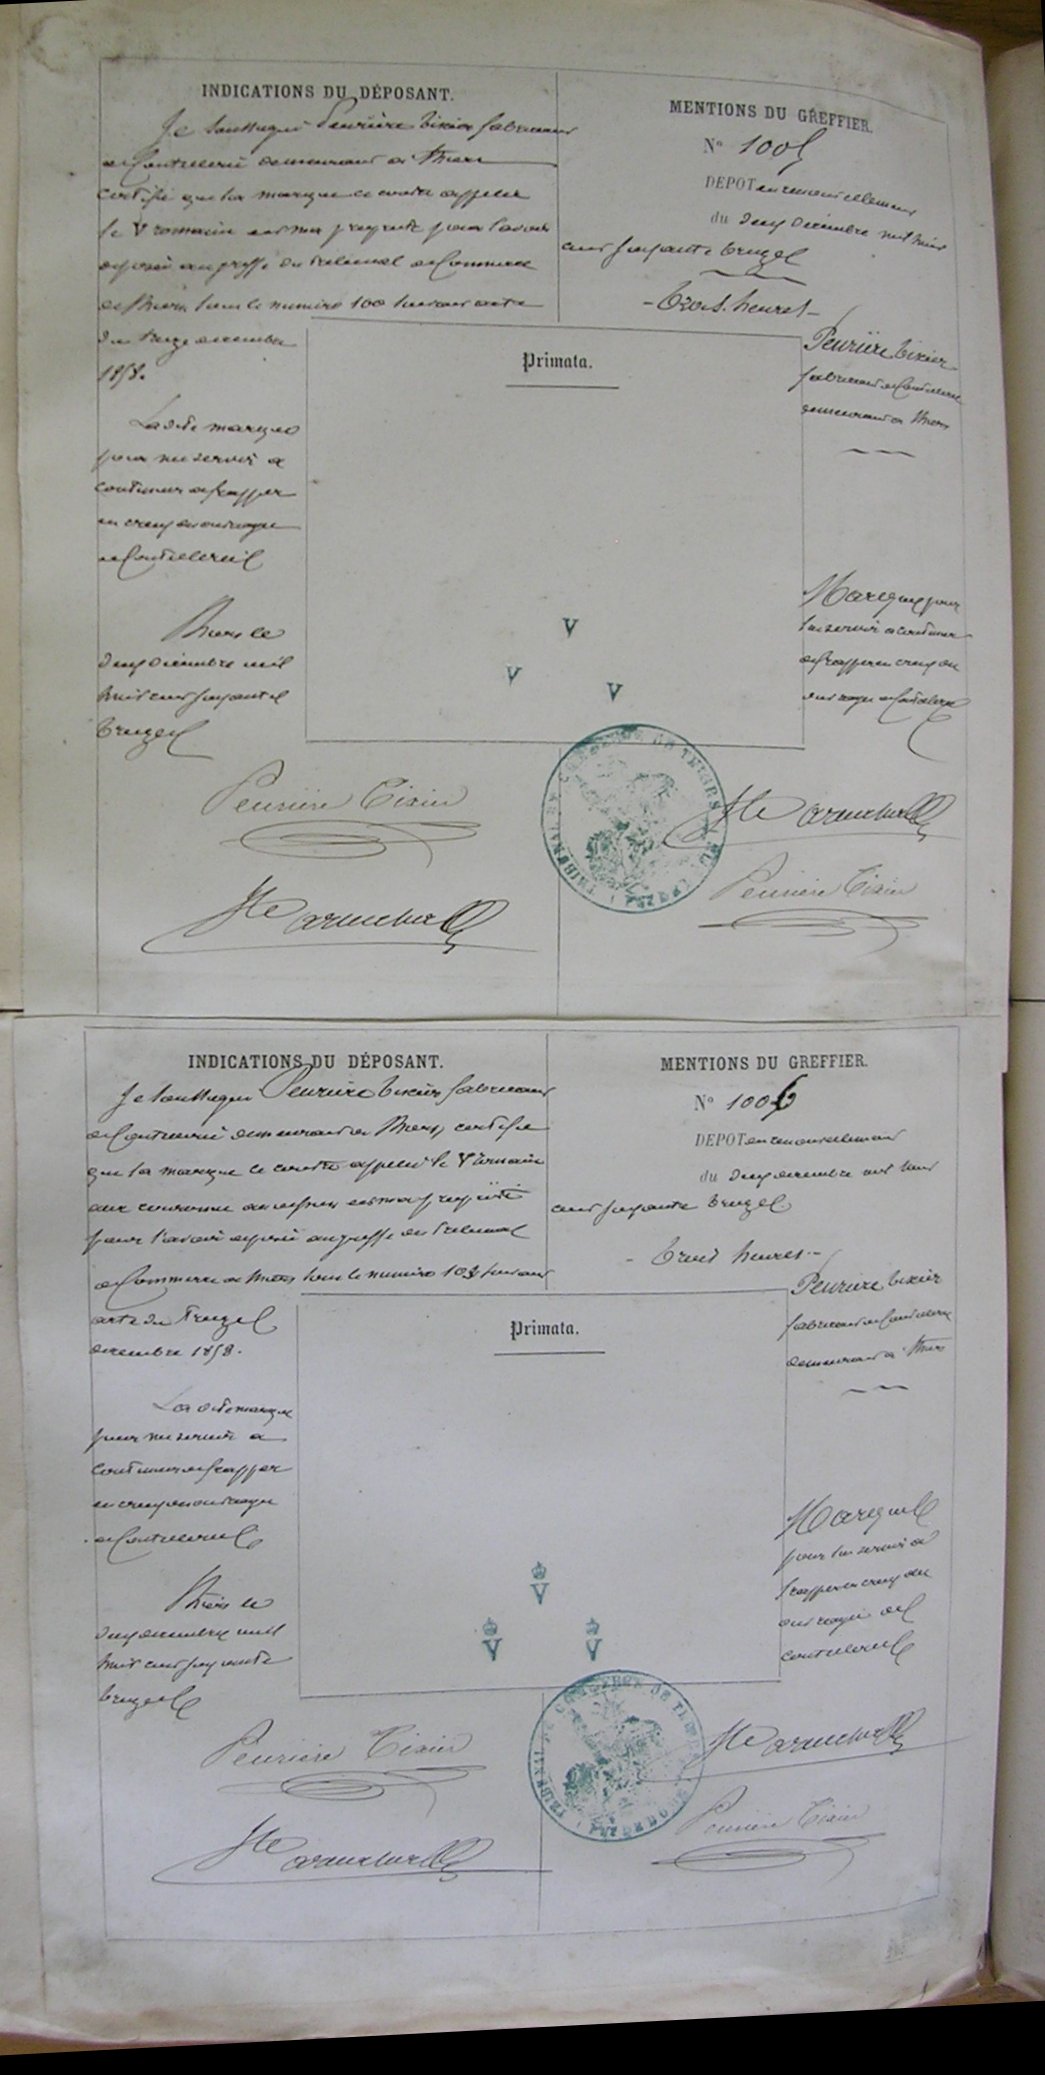 INDICATIONS DU DÉPOSANT.
Je soussigné Peurière tixier fabricant
de Coutellerie demeurant à Thiers
certifie que la marque ci contre appelée
le V romain est ma propriété pour l'avoir
déposée au greffe du tribunal de Commerce
de Thiers sous le numéro 100 suivant acte
du treize décembre
1858.
La dite marque
pour me servir à
continuer de frapper
en creux
de Coutellerie
Thiers le
deux décembre mil
huit cent soixante
treize
Peurière Tixier
MENTIONS DU GREFFIER.
N° 1005
DEPOT en renouvellement
du deux décembre mil huit
cent soixante treize
- trois heures -
Peurière tixier
fabricant de Coutellerie
demeurant à Thiers
Primata.
V
V V
Marque pour
lui servir à continuer
de frapper en creux
de Coutellerie
TRIBUNAL DE COMMERCE DE THIERS
Peurière Tixier
INDICATIONS DU DÉPOSANT.
Je soussigné Peurière tixier fabricant
de Coutellerie demeurant à Thiers, certifie
que la marque ci contre appelée le V romain
une couronne au dessus est ma propriété
pour l'avoir déposée au greffe du tribunal
de Commerce de Thiers sous le numéro 103 suivant
acte du treize
décembre 1858.
La dite marque
pour me servir à
continuer de frapper
en creux
de Coutellerie
Thiers le
deux décembre mil
huit cent soixante
treize
Peurière Tixier
MENTIONS DU GREFFIER.
N° 1006
DEPOT en renouvellement
du deux décembre mil huit
cent soixante treize
- trois heures -
Peurière tixier
fabricant de Coutellerie
demeurant à Thiers
Primata.
V
V V
Marque
pour lui servir à
frapper en creux
coutellerie
TRIBUNAL DE COMMERCE DE THIERS
Peurière Tixier